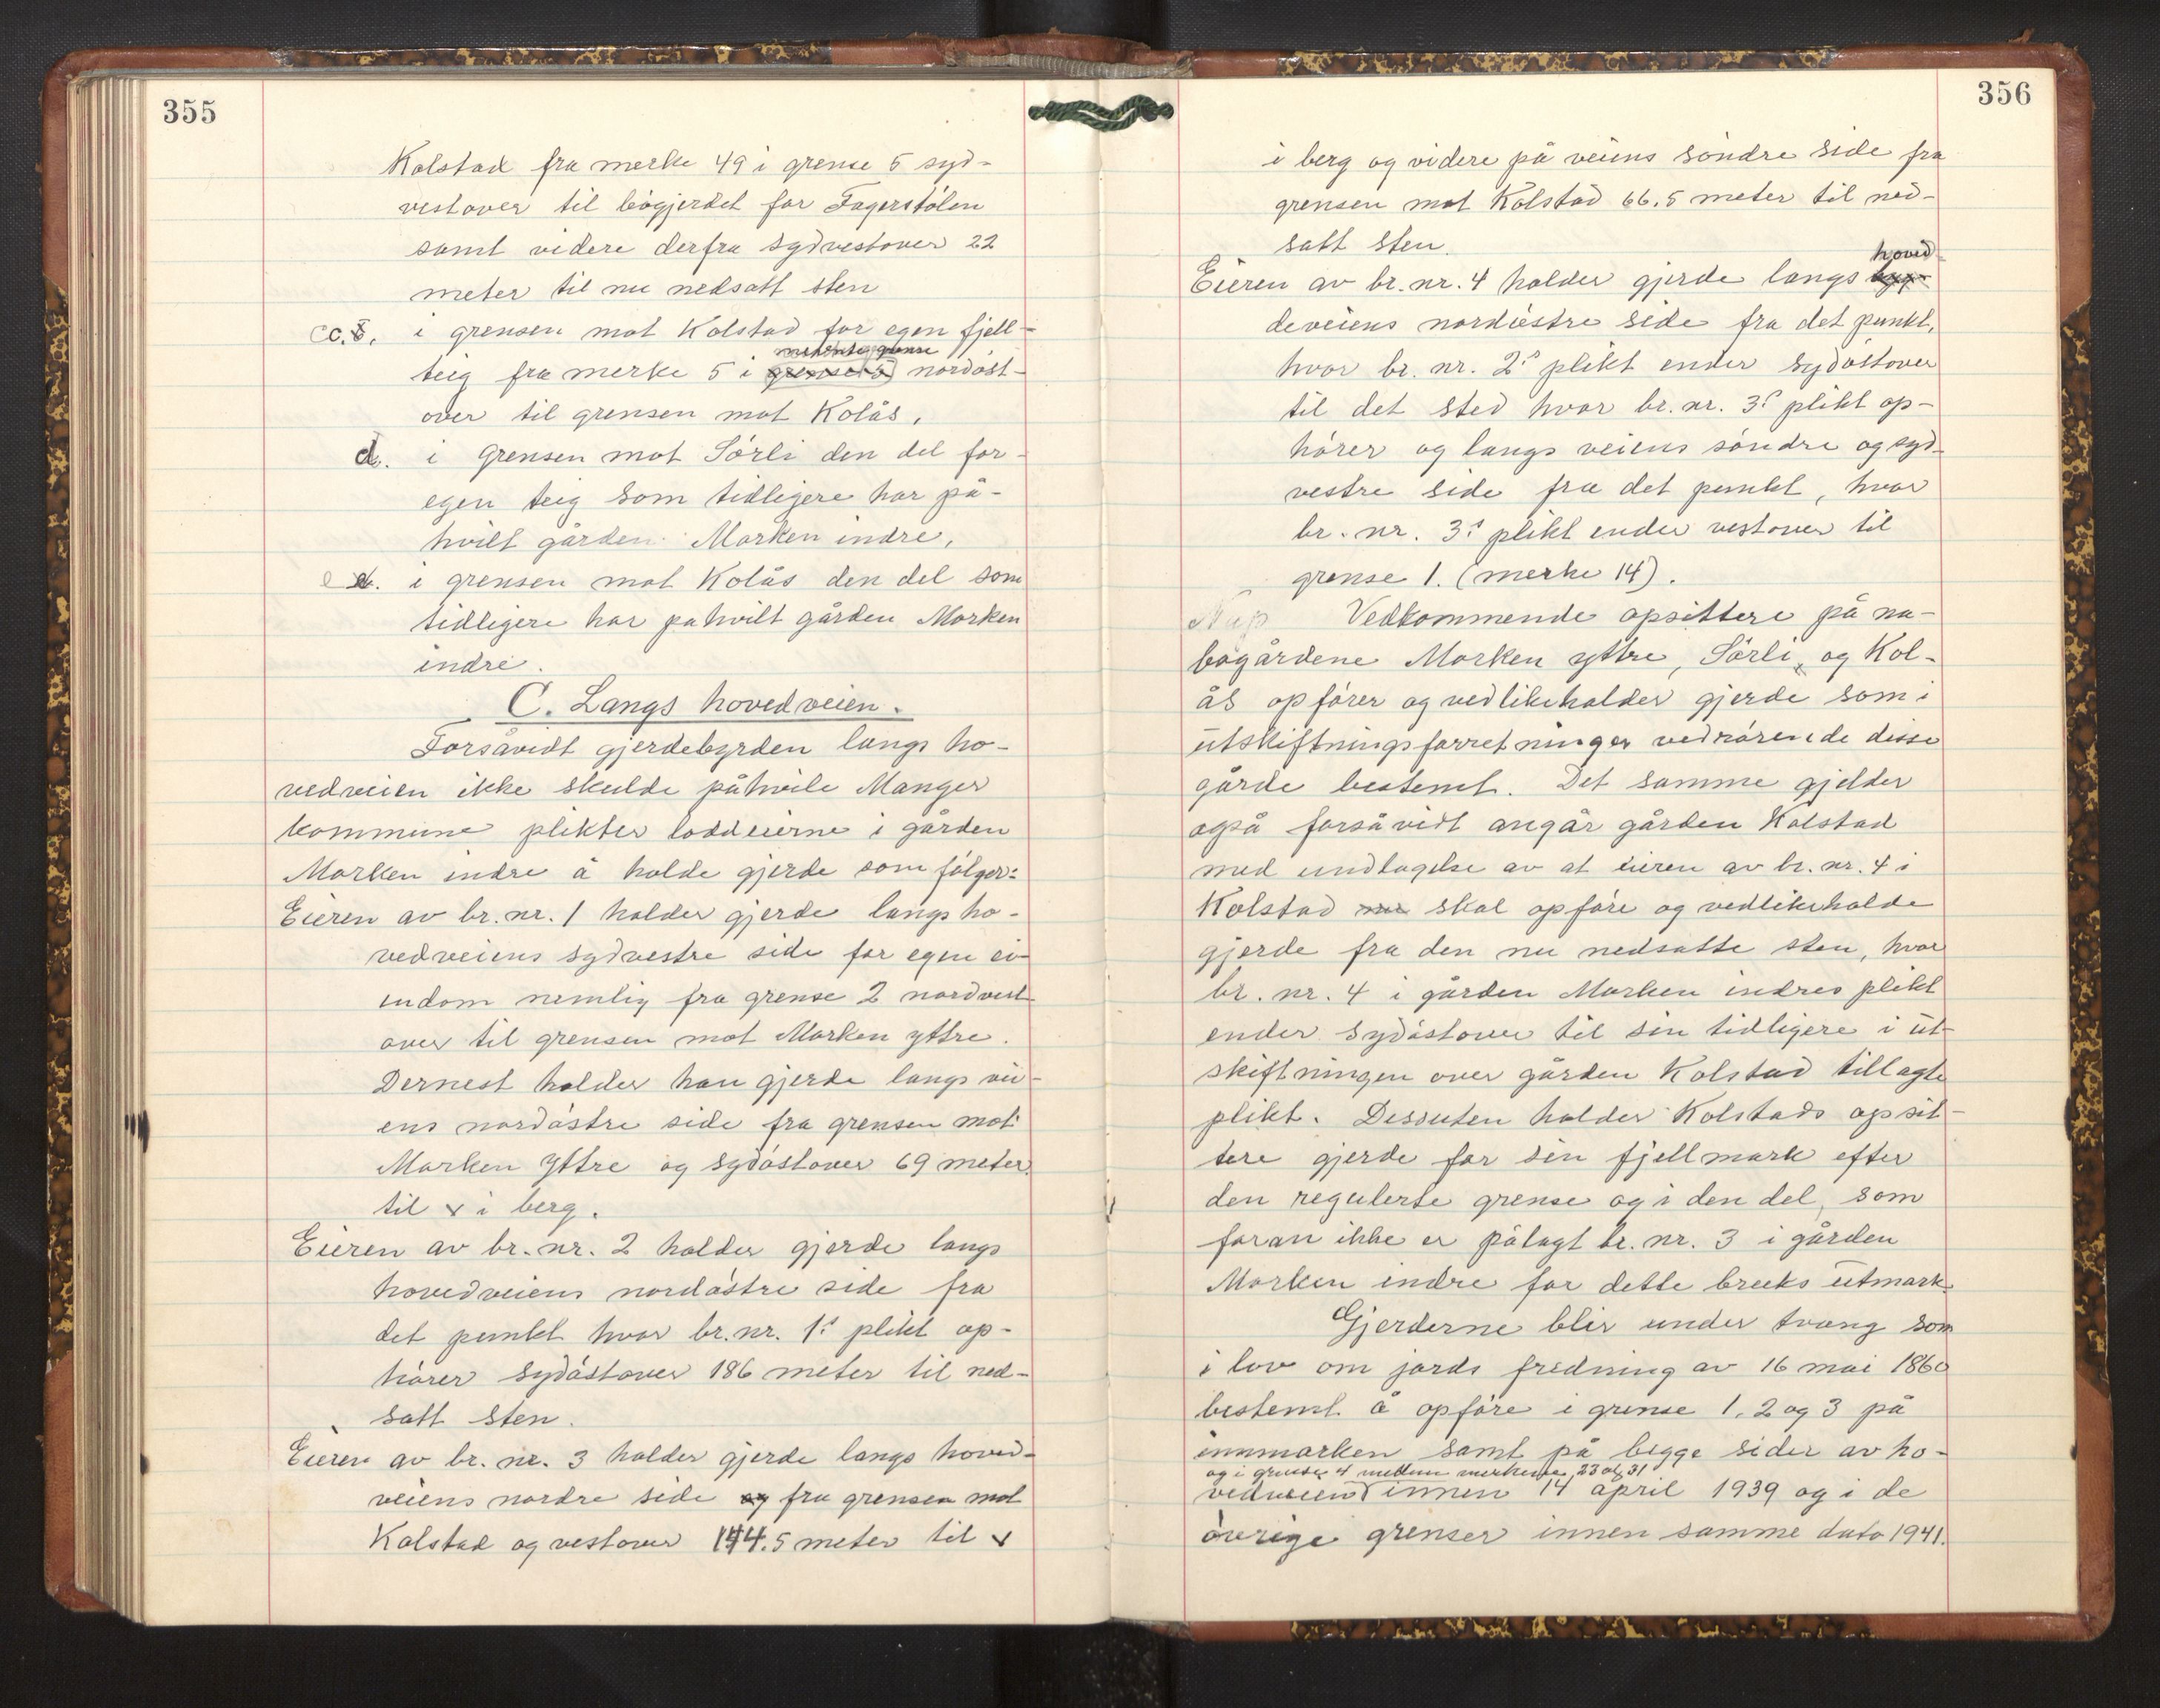 355
Kolstad fra merke 49 i grense 5 syd-
vestover til bøgjerdet for Fagerstølen
samt videre derfra sydvestover 22
meter til nu nedsatt sten
c. i grensen mot Kolstad for egen fjell-
teig fra merke 5 i nordøst-
over til grensen mot Kolås.
d. i grensen mot Sørli den del for
egen teig som tidligere har på-
hvilt gården Marken indre.
e. i grensen mot Kolås den del som
tidligere har påhvilt gården Marken
indre.
C. Langs hovedveien.
Forsåvidt gjerdebyrden langs ho-
vedveien ikke skulde påhvile Manger
kommune plikter loddeierne i gården
Marken indre å holde gjerde som følger:
Eieren av br. nr. 1 holder gjerde langs ho-
vedveiens sydvestre side for egen ei-
endom nemlig fra grense 2 nordvest-
over til grensen mot Marken yttre.
Dernest holder han gjerde langs vei-
ens nordøstre side fra grensen mot
Marken yttre og sydøstover 69 meter
til x i berg.
Eieren av br. nr. 2 holder gjerde langs
hovedveiens nordøstre side fra
det punkt hvor br. nr. 1s plikt op-
hører sydøstover 186 meter til ned-
satt sten.
Eieren av br. nr. 3 holder gjerde langs hoved-
veiens nordre side og fra grensen mot
Kolstad og vestover 144.5 meter til x
356
i berg og videre på veiens søndre side fra
grensen mot Kolstad 66.5 meter til ned-
satt sten.
hoved-
Eieren av br. nr. 4 holder gjerde langs byg-
deveiens nordøstre side fra det punkt,
hvor br. nr. 2s plikt ender sydøstover
til det sted hvor br. nr. 3s plikt op-
hører og langs veiens søndre og syd-
vestre side fra det punkt, hvor
br. nr. 3s plikt ender vestover til
grense 1. (merke 14).
Vedkommende opsittere på na-
bogårdene Marken yttre, Sørli, og Kol-
ås opfører og vedlikeholder gjerde som i
utskiftningsforretninger vedrørende disse
gårde bestemt. Det samme gjelder
også forsåvidt angår gården Kolstad
med undtagelse av at eieren av br. nr. 4 i
Kolstad nu skal opføre og vedlikeholde
gjerde fra den nu nedsatte sten, hvor
br. nr. 4 i gården Marken indres plikt
ender sydøstover til sin tidligere i ut-
skiftningen over gården Kolstad tillagte
plikt. Dessuten holder Kolstads opsit-
tere gjerde for sin fjellmark efter
den regulerte grense og i den del, som
foran ikke er pålagt br. nr. 3 i gården
Marken indre for dette bruks utmark.
Gjerderne blir under tvang som
i lov om jords fredning av 16 mai 1860
bestemt å opføre i grense 1, 2 og 3 på
innmarken samt på begge sider av ho-
og i grense 4 mellem merkerne 23 og 31
vedveien innen 14 april 1939 og i de
øvrige grenser innen samme dato 1941.